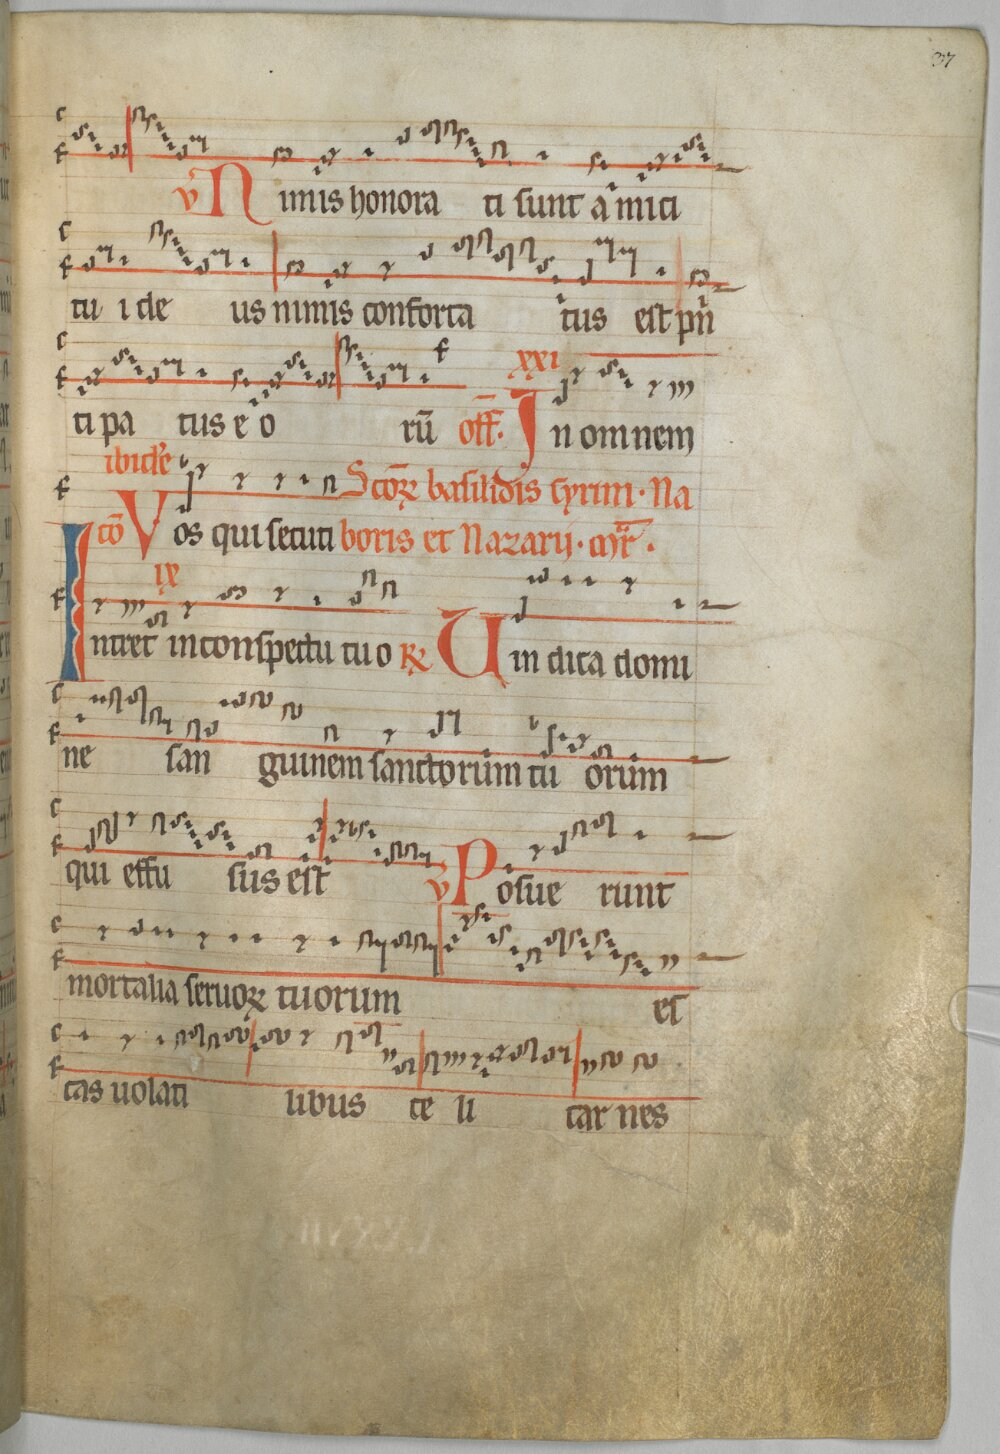 37
v Nimis honora ti sunt a mici
tu i de us nimis conforta tus est prī
xxi
ti pa tus e o rū off. In omnem
ibidē
Scōꝝ basilidis cyrini. Na
cō Vos qui secuti boris et Nazarii. mr̄.
ix
Intret in conspectu tuo R Uindica domi
ne san guinem sanctorum tu orum
qui effu sus est v Posue runt
mortalia seruoꝝ tuorum es
cas uolati libus ce li car nes